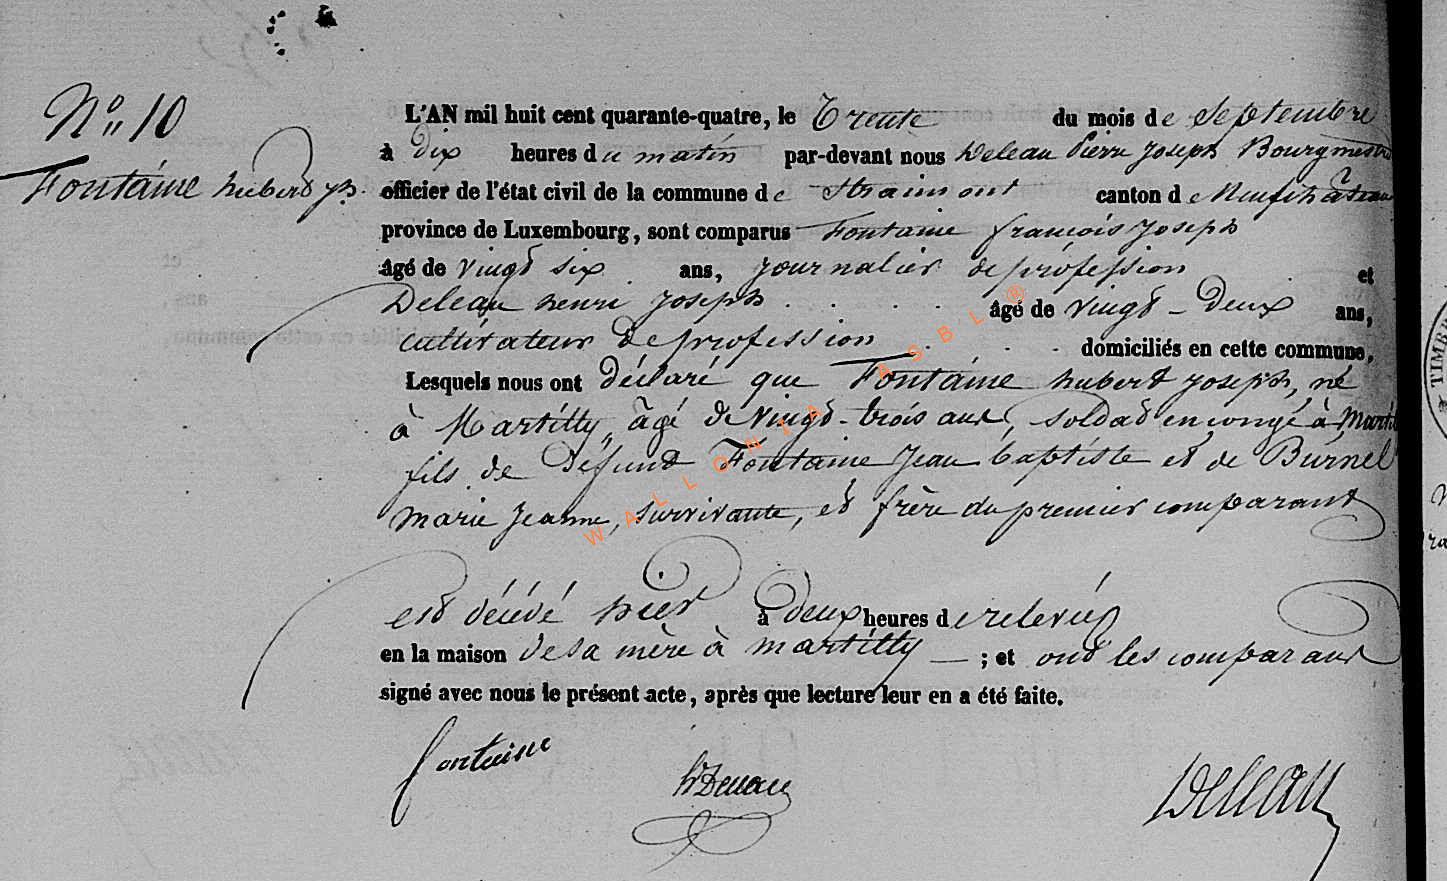 N° 10
Fontaine hubert jph
L'AN mil huit cent quarante-quatre, le Trente du mois de Septembre
à dix heures du matin par-devant nous Deleau Pierre Joseph Bourgmestre
officier de l'état civil de la commune de Straimont canton de Neufchâteau
province de Luxembourg, sont comparus Fontaine françois Joseph
âgé de vingt six ans, journalier de profession et
Deleau henri Joseph . . . . . âgé de vingt-deux ans,
cultivateur de profession . . . domiciliés en cette commune,
Lesquels nous ont déclaré que Fontaine hubert joseph, né
à Martilly, âgé de vingt-trois ans, soldat en congé à Martil
fils de défunt Fontaine Jean baptiste et de Burnel
marie Jeanne, survivante, et frère du premier comparant
est décédé hier à deux heures de relevée
en la maison de sa mère à martilly — ; et ont les comparans
signé avec nous le présent acte, après que lecture leur en a été faite.
fontaine
h Deleau
Deleau
WALLONIA ASBL ®
TIMB